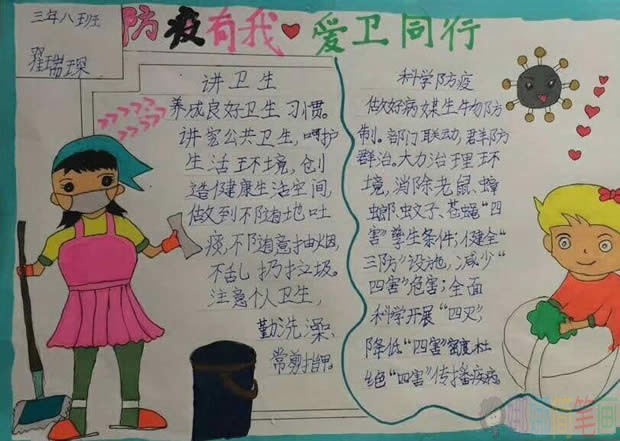 三年八班
翟瑞琛
防疫有我 爱卫同行
讲卫生
养成良好卫生习惯。
讲究公共卫生,呵护
生活环境,创
造健康生活空间,
做到不随地吐
痰,不随意抽烟,
不乱扔垃圾。
注意个人卫生,
勤洗澡
常剪指甲。
科学防疫
做好病媒生物防
制。部门联动,群防
群治。大力治理环
境,消除老鼠、蟑
螂、蚊子、苍蝇“四
害”孳生条件;健全“
三防”设施,减少“
四害”危害;全面
科学开展“四灭”
降低“四害”密度杜
绝“四害”传播疾病。